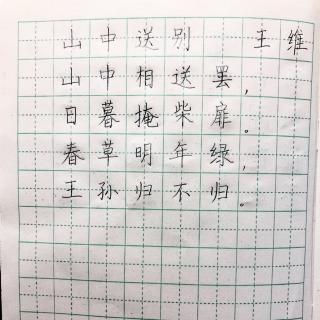 山中送别 王维
山中相送罢，
日暮掩柴扉。
春草明年绿，
王孙归不归。